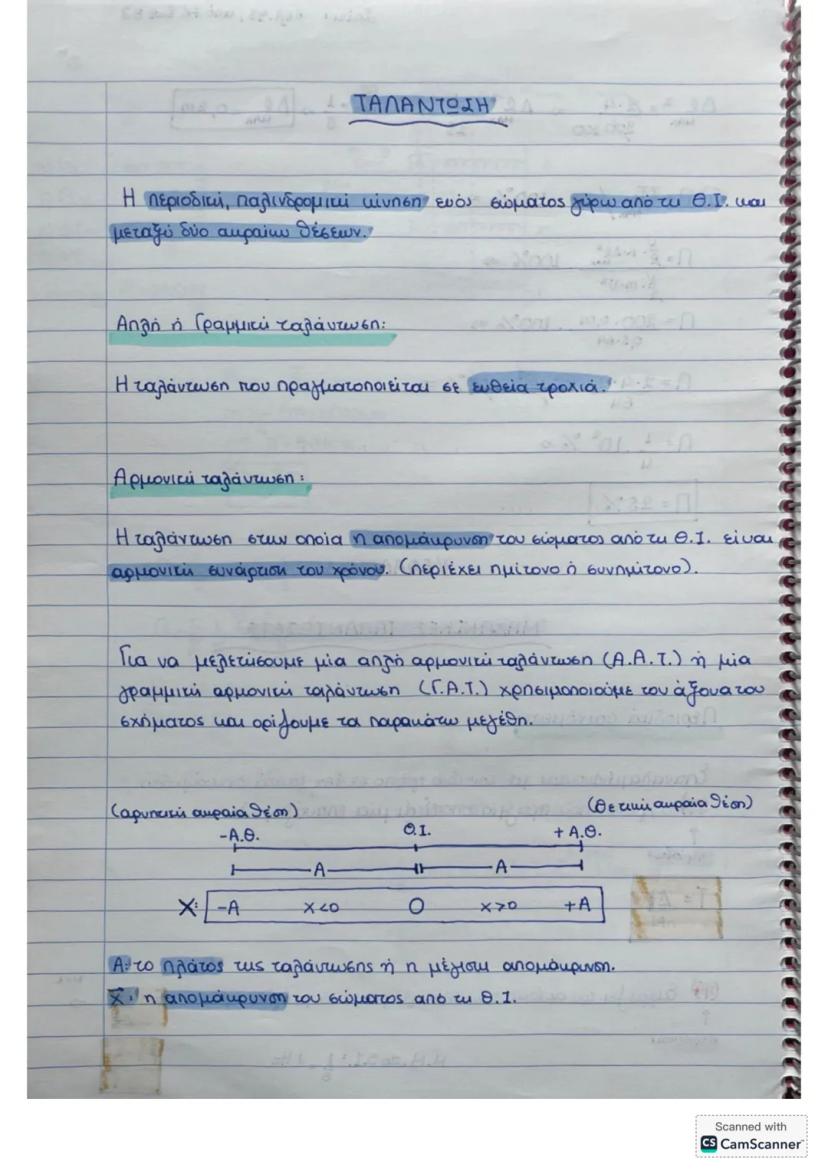 ΤΑΛΑΝΤΩΣΗ
Η περιοδική, παλινδρομική κίνηση ενός σώματος γύρω από τη Θ.Ι. και
μεταξύ δύο ακραίων θέσεων.
Απλή ή Γραμμική ταλάντωση:
Η ταλάντωση που πραγματοποιείται σε ευθεία τροχιά.
Αρμονική ταλάντωση:
Η ταλάντωση στην οποία η απομάκρυνση του σώματος από τη Θ.Ι. είναι
αρμονική συνάρτηση του χρόνου. (περιέχει ημίτονο ή συνημίτονο).
Για να μελετήσουμε μία απλή αρμονική ταλάντωση (Α.Α.Τ.) ή μία
γραμμική αρμονική ταλάντωση (Γ.Α.Τ.) χρησιμοποιούμε τον άξονα του
σχήματος και ορίζουμε τα παρακάτω μεγέθη.
(αρνητική ακραία θέση) (θετική ακραία θέση)
-Α.Θ. Θ.Ι. +Α.Θ.
Α Α
X: -A x<0 0 x>0 +A
Α: το πλάτος της ταλάντωσης ή η μέγιστη απομάκρυνση.
X: η απομάκρυνση του σώματος από τη Θ.Ι.
Scanned with
CS CamScanner